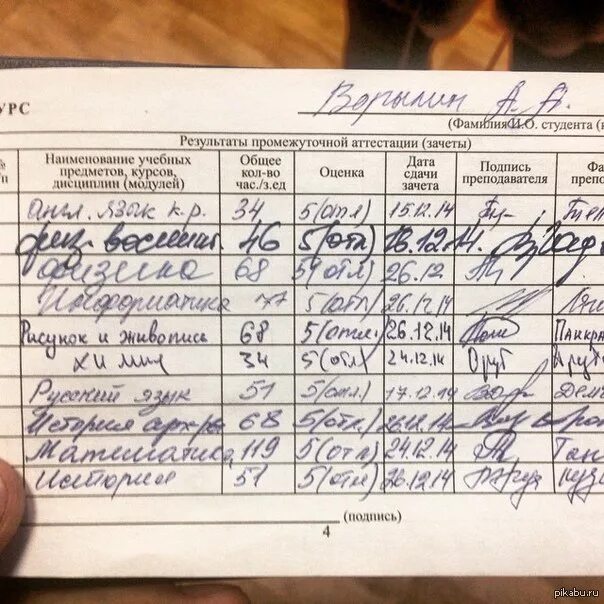 УРС
Ворылин А. А.
(Фамилия И.О. студента
Результаты промежуточной аттестации (зачеты)
№ п Наименование учебных предметов, курсов, дисциплин (модулей) Общее кол-во час./з.ед Оценка Дата сдачи зачета Подпись преподавателя Фа пре
англ. язык к.р. 34 5(отл) 15.12.14
физ. воспит. 46 5(отл) 16.12.14.
физика 68 5(отл) 26.12
Информатика 77 5(отл) 26.12.14
Рисунок и живопись 68 5(отл.) 26.12.14 Панкра
химия 34 5(отл) 24.12.14 Орут Арут
Русский язык 51 5(отл) 17.12.14 Дем
История арх-ры 68 5(отл.) 26.12.14
Математика 119 5(отл) 24.12.14 Ган
История 51 5(отл) 26.12.14 Кузн
(подпись)
4
pikabu.ru